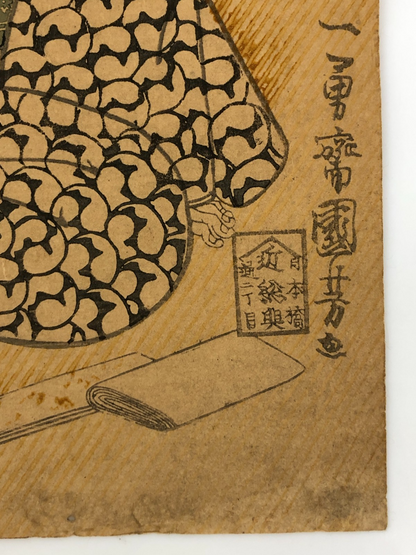 一勇齋國芳画
日本橋
近総與
通二丁目